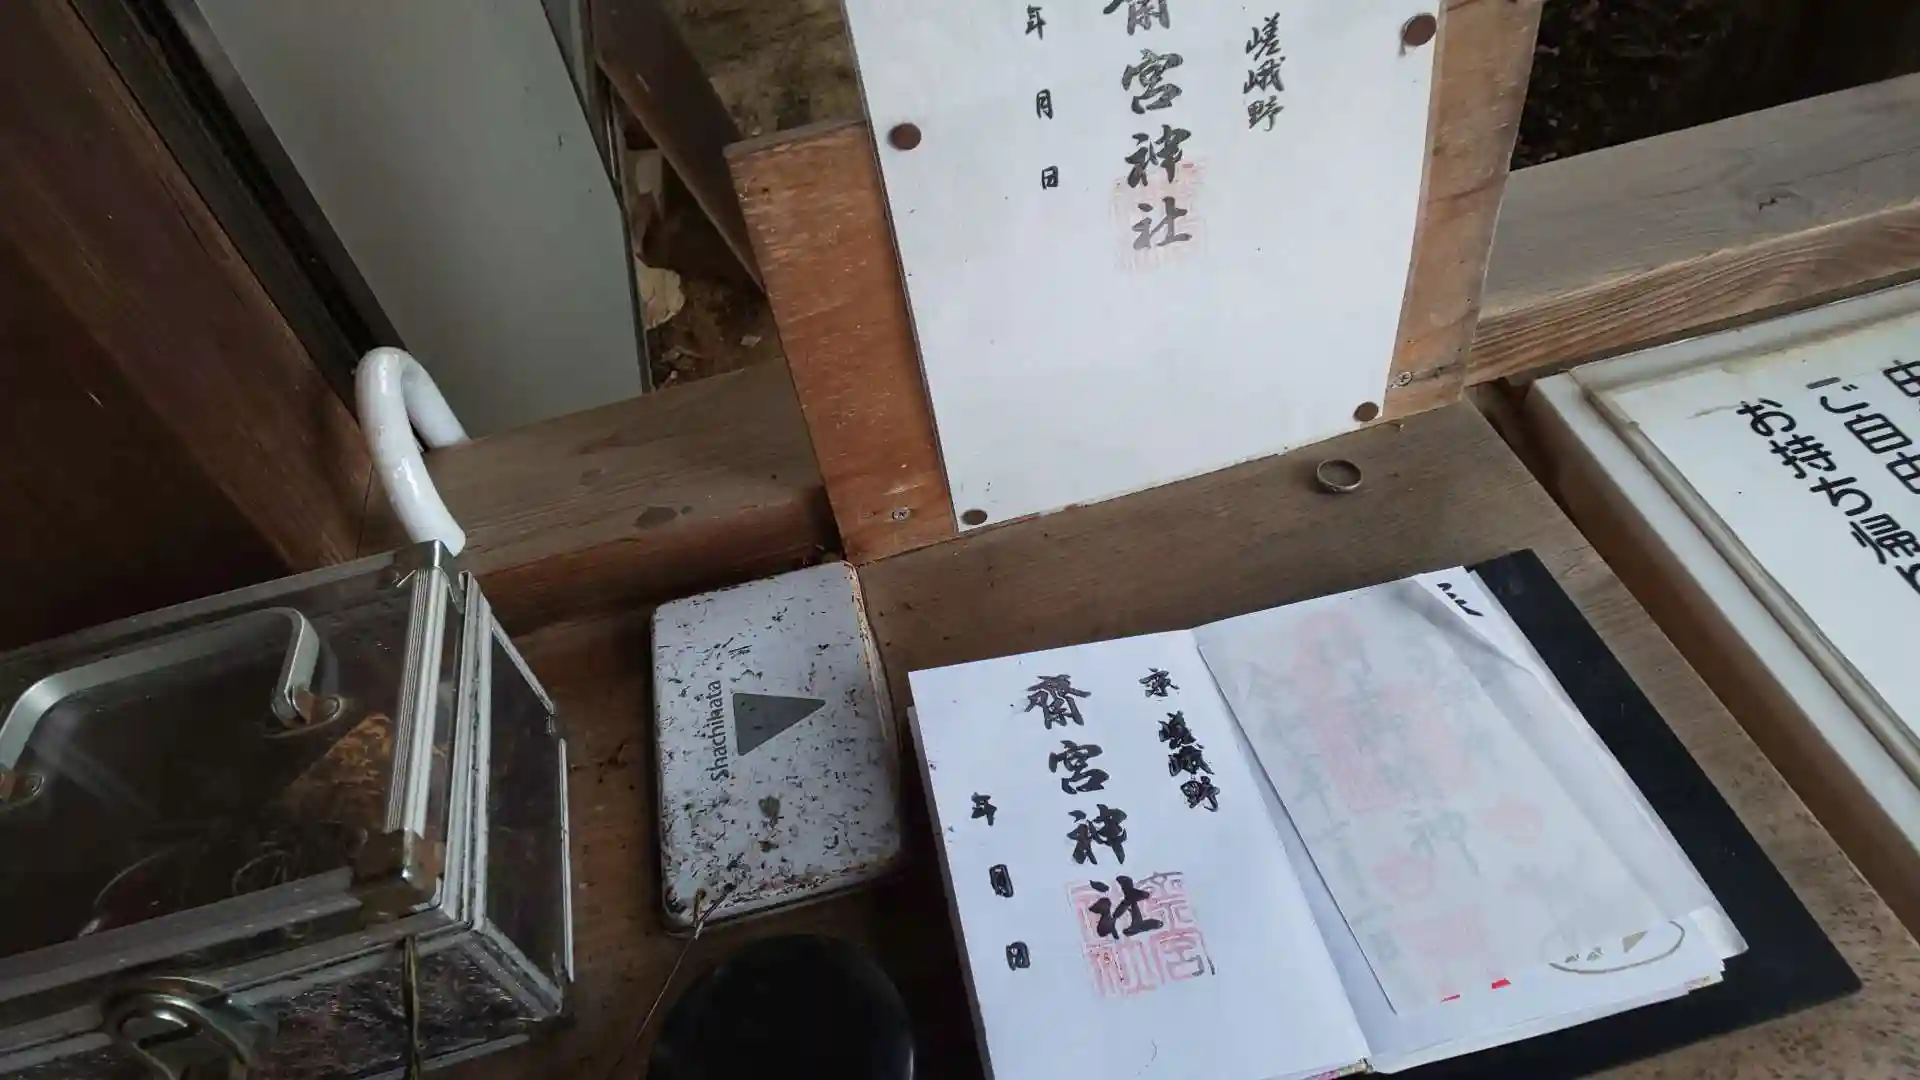 嵯峨野
齋宮神社
年 月 日
お持ち帰
ご自由
Shachihata
京 嵯峨野
齋宮神社
年 月 日